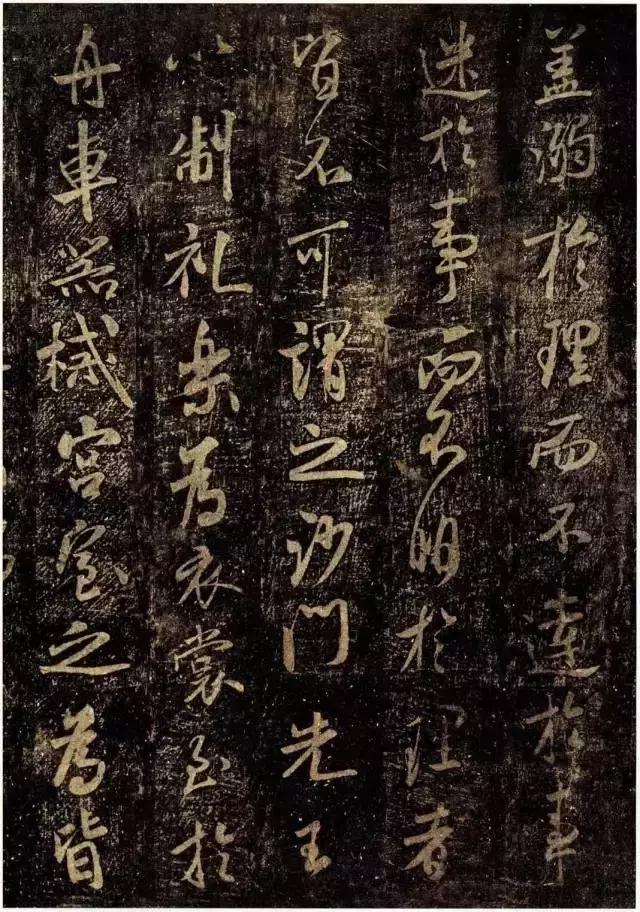 盖溺於理而不達於事
迷於事而不明於理者
皆不可謂之沙門先王
以制礼樂為衣裳至於
舟車器械宮室之為皆